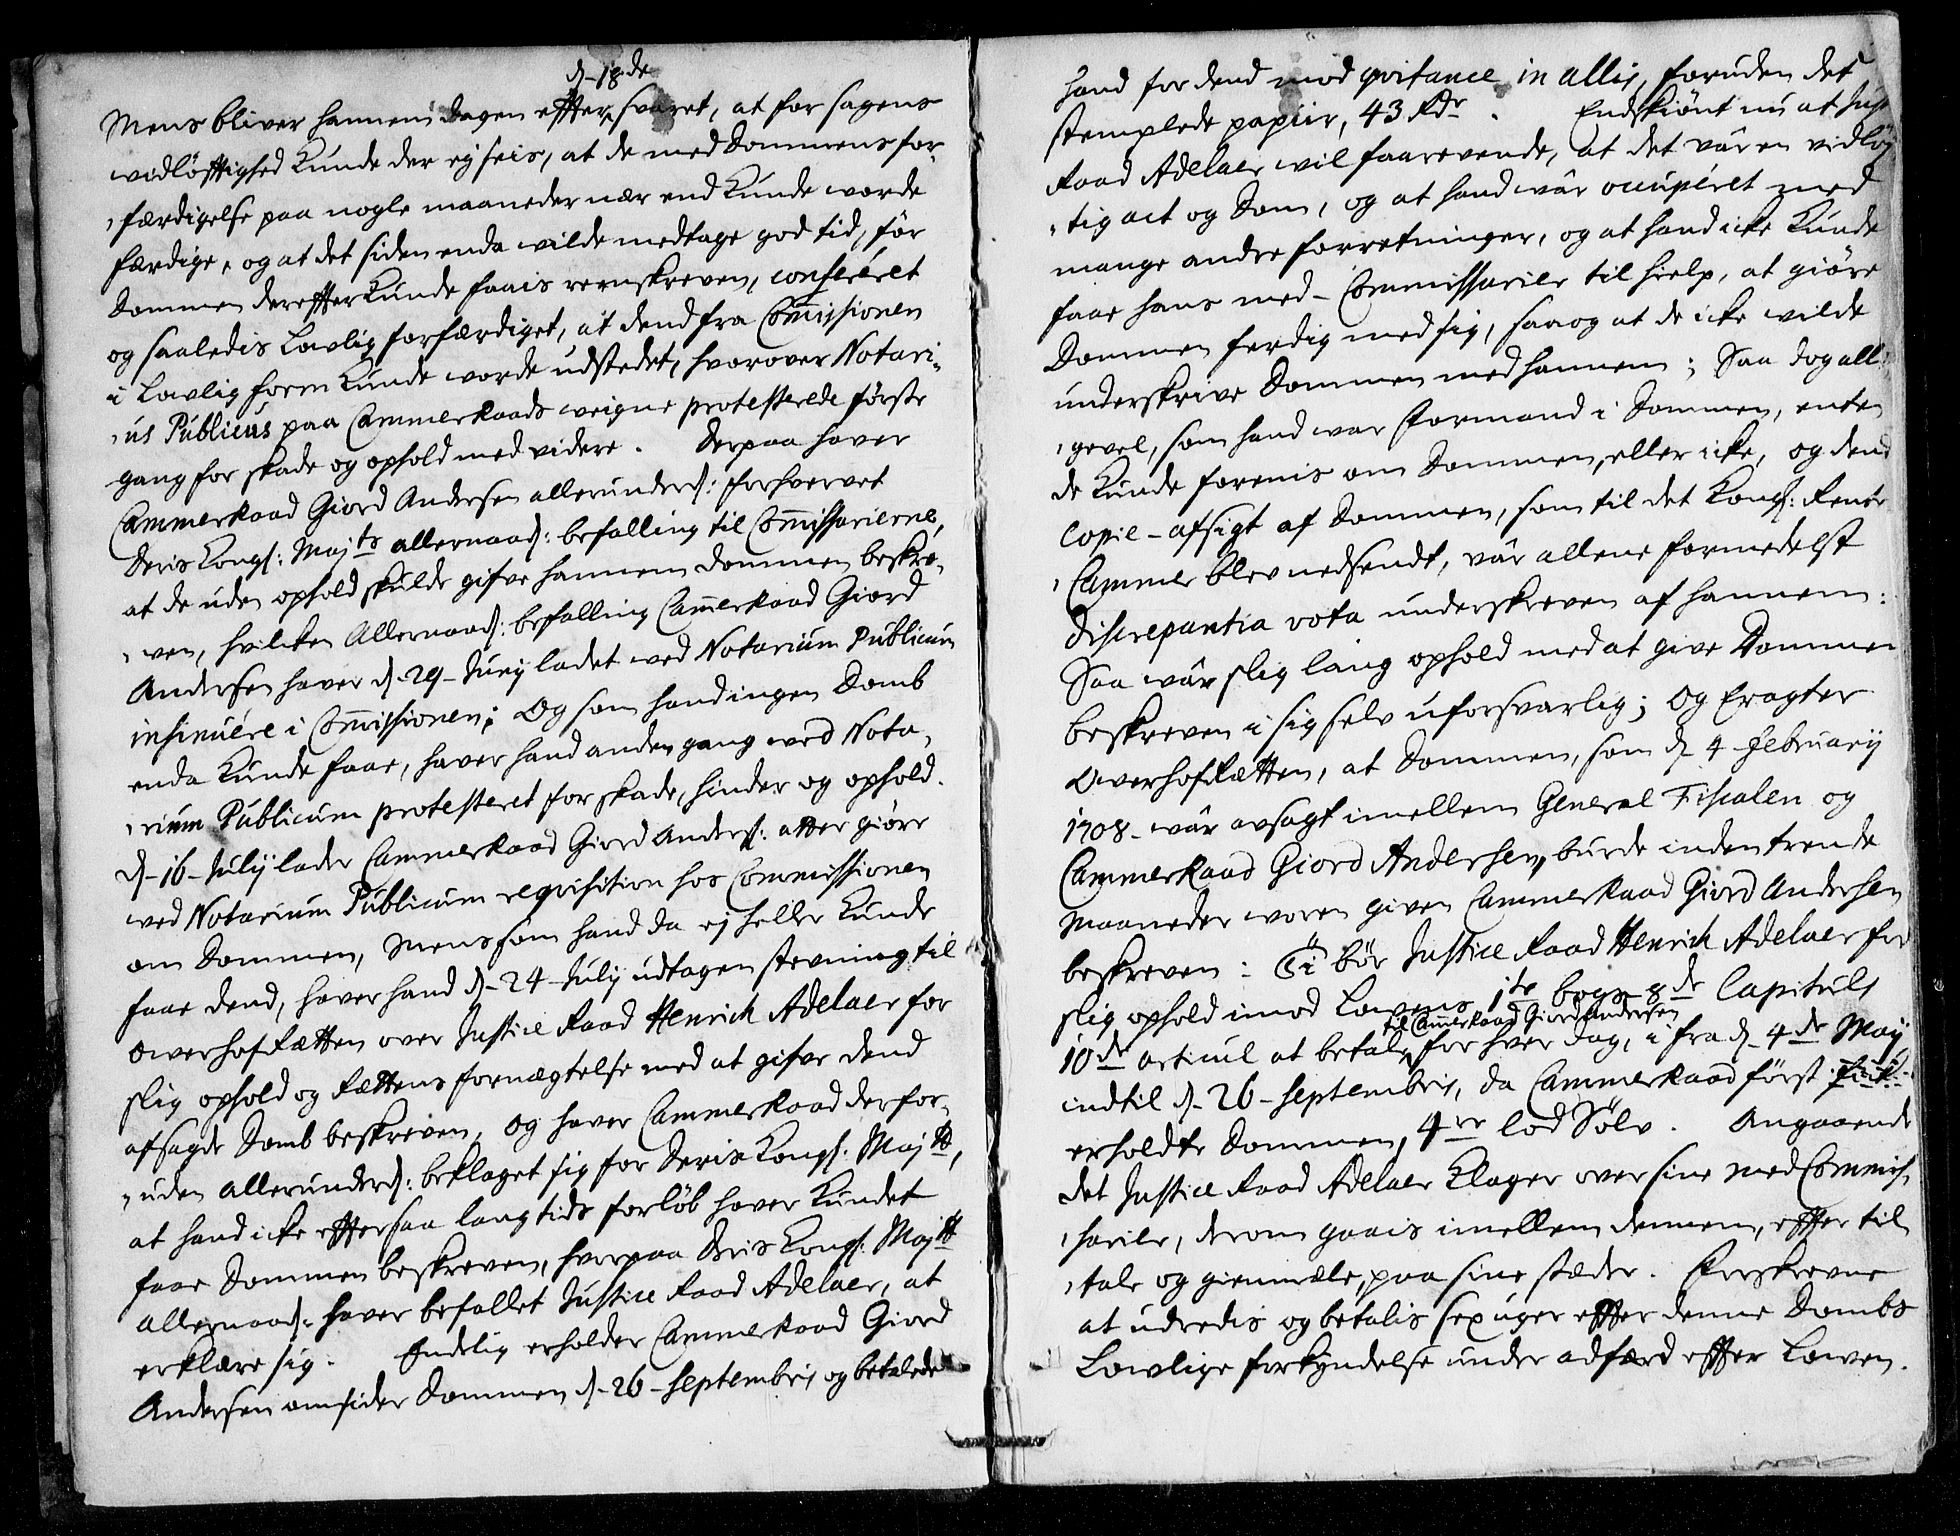 d. 18de
Mens bliver hannem dagen effter svaret, at for sagens
vidløfftighed kunde der ej seis, at de med Dommens for-
færdigelse paa nogle maaneder nær end kunde vorde
færdige, og at det siden enda vilde medtage god tid, før
Dommen dereffter kunde faais reenskreven, conferéret
og saaledis Lovlig forfærdiget, at dend fra Commissionen
i Lovlig form kunde vorde udstedet, hvorover Notari-
us Publicus paa Cammerraads veigne protesterede første
gang for skade og ophold med videre. Derpaa haver
Cammerraad Giord Andersen allerunderd: forhvervet
Deris Kongl: Majts allernaad: befalling til Commissarierne,
at de uden ophold skulde gifve hannem dommen beskre-
ven, hvilken Allernaad: befalling Cammerraad Giord
Andersen haver d. 29 Junij ladet ved Notarium Publicum
insinuére i Commissionen; Og som hand ingen Domb
enda kunde faae, haver hand anden gang ved Nota-
rium Publicum protesteret for skade, hinder og ophold.
d. 16 Julij lader Cammerraad Giord Anders: atter giøre
ved Notarium Publicum reqvisition hos Commissionen
om Dommen, Mens som hand da ej heller kunde
faae dend, haver hand d. 24 Julij udtagen stevning til
OverhofRætten over Justice Raad Henrich Adelaer for
slig ophold og Rættens fornægtelse med at gifve dend
afsagde Domb beskreven, og haver Cammerraad derfor-
uden allerunderd: beklaget sig for Deris Kongl: Majtt,
at hand icke effter saa lang tids forløb haver kundet
faae Dommen beskreven, hvorpaa Deris Kongl: Majtt
allernaad: haver befallet Justice Raad Adelaer, at
erklære sig. Endelig erholder Cammerraad Giord
Andersen omsider Dommen d. 26 Septembris og betalede
hand for dend mod qvitance in allis, foruden det
stemplede papiir, 43 Rdr. Endskiønt nu at Just
Raad Adelaer vil foorevende, at det vár en vidløf
tig act og Dom, og at hand vár occupéret med
mange andre forretninger, og at hand icke kunde
faae hans med-Commissarier til hielp, at giøre
Dommen ferdig med sig, saa og at de icke vilde
underskrive Dommen med hannem; Saa dog alli
gevel, som hand var Formand i Dommen, enten
de kunde forenis om Dommen, eller icke, og dend
Copie-afsigt af Dommen, som til det Kongl: Rente
Cammer blev nedsendt, vár allene formedelst
discrepantia vota underskreven af hannem:
Saa vár slig lang ophold med at give Dommen
beskreven i sig selv uforsvarlig; Og eragter
OverhofRætten, at Dommen, som d. 4 Februarij
1708 vár avsagt imellem General Fiscalen og
Cammerraad Giord Andersen, burde inden trende
Maaneder voren given Cammerraad Giord Andersen
beskreven: Ti bør Justice Raad Henrich Adelaer for
slig ophold imod Lovens 1te bogs 8de Capituls
til Cammerraad Giord Andersen
10de articul at betale for hver dag, i fra d. 4de Maij
indtil d. 26 Septembris, da Cammerraad først fick
erholdte Dommen, 4re lod Sølv. Angaaende
det Justice Raad Adelaer klager over sine Med Commis-
sarier, derom gaais imellem dennem, effter til
tale og gienmæle, paa sine stæder. Forskrevne
at udredis og betalis sex uger effter denne Dombs
Lovlige forkyndelse under adfærd effter Loven.